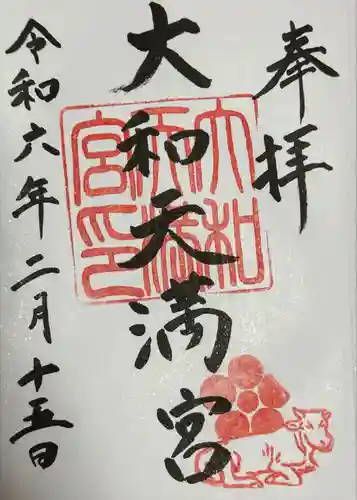 奉拝
大和天満宮
令和六年二月十五日
大和
天満
宮印